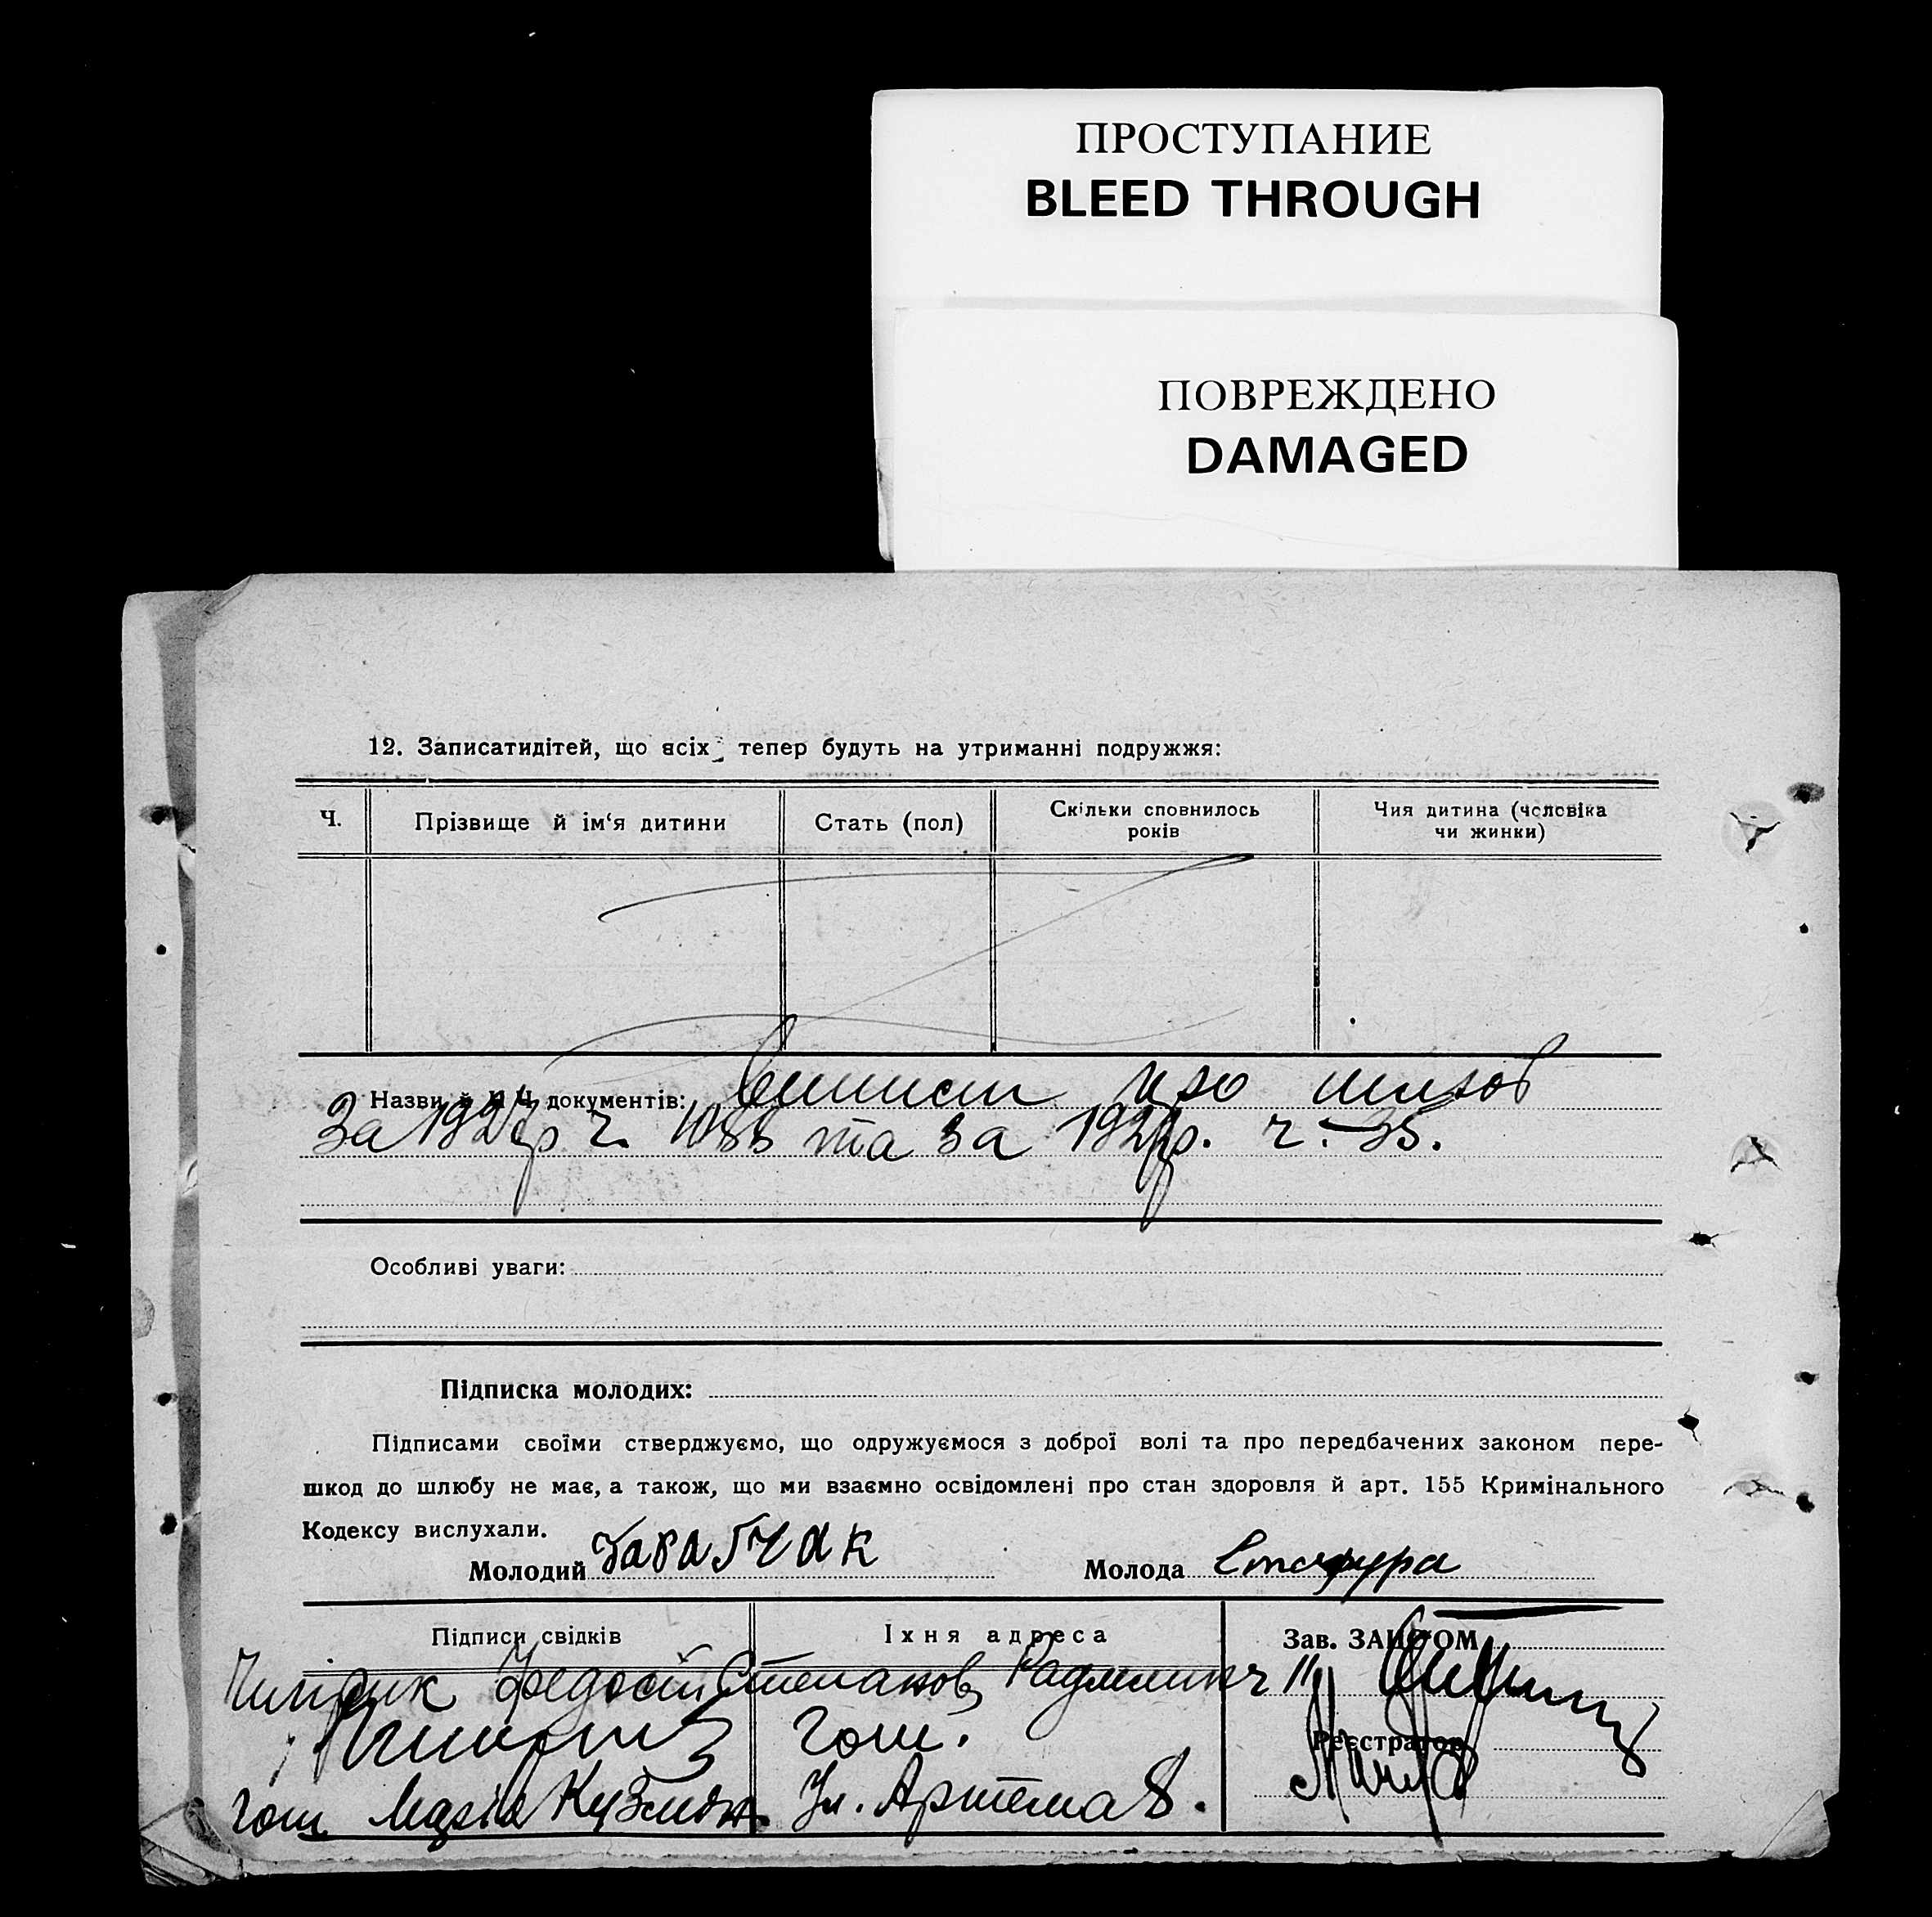 ПРОСТУПАНИЕ
BLEED THROUGH
ПОВРЕЖДЕНО
DAMAGED
12. Записатидітей, що всіх тепер будуть на утриманні подружжя:
Ч.
Прізвище й ім‘я дитини
Стать (пол)
Скільки сповнилось
років
Чия дитина (чоловіка
чи жинки)
Назви й Ч.Ч. документів: про шлюб
За ч. та за ч. 35.
Особливі уваги:
Підписка молодих:
Підписами своїми стверджуємо, що одружуємося з доброї волі та про передбачених законом пере-
шкод до шлюбу не має, а також, що ми взаємно освідомлені про стан здоровля й арт. 155 Кримінального
Кодексу вислухали.
Молодий
Молода
Підписи свідків
Їхня адреса
Зав. ЗАГС'ОМ
Федосій Степанов
Реєстратор
Марія Ул. Артема 8.